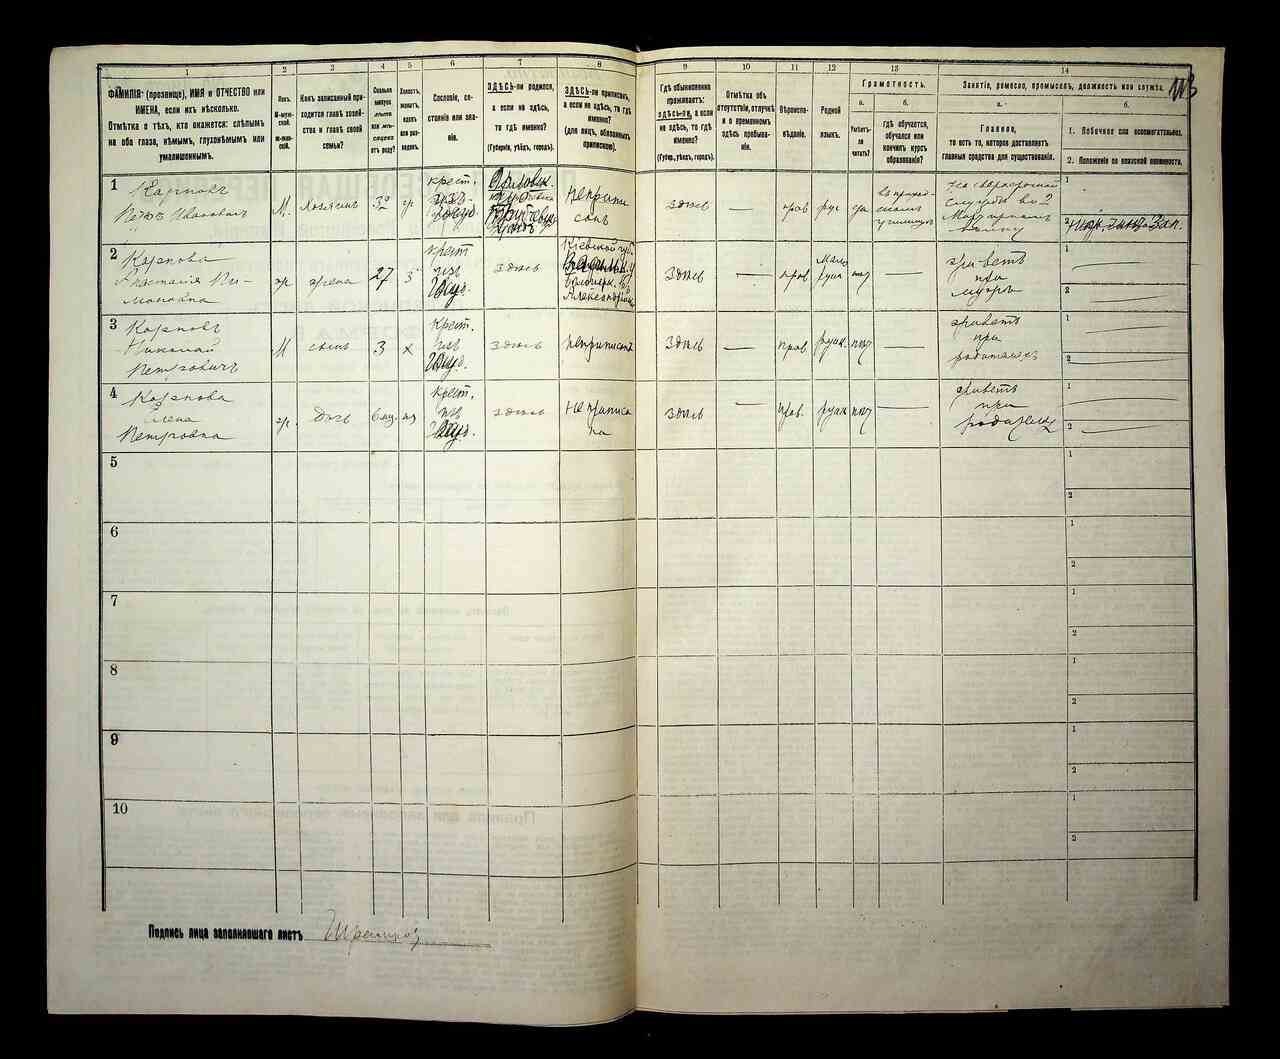 1
2
3
4
5
6
7
8
9
10
11
12
13
14
ФАМИЛІЯ (прозвище), ИМЯ и ОТЧЕСТВО или
ИМЕНА, если ихъ нѣсколько.
Отмѣтка о тѣхъ, кто окажется: слѣпымъ
на оба глаза, нѣмымъ, глухонѣмымъ или
умалишеннымъ.
Полъ.
М-муж-
ской.
Ж-жен-
скій.
Какъ записанный при-
ходится главѣ хозяй-
ства и главѣ своей
семьи?
Сколько
минуло
лѣтъ
или мѣ-
сяцевъ
отъ роду?
Холостъ,
женатъ,
вдовъ
или раз-
веденъ.
Сословіе, со-
стояніе или зва-
ніе.
ЗДѢСЬ-ли родился,
а если не здѣсь,
то гдѣ именно?
(Губернія, уѣздъ, городъ).
ЗДѢСЬ-ли приписанъ,
а если не здѣсь, то гдѣ
именно?
(для лицъ, обязанныхъ
припискою).
Гдѣ обыкновенно
проживаетъ:
здѣсь-ли, а если
не здѣсь, то гдѣ
именно?
(Губер., уѣздъ, городъ).
Отмѣтка объ
отсутствіи, отлучкѣ
и о временномъ
здѣсь пребыва-
ніи.
Вѣроиспо-
вѣданіе.
Родной
языкъ.
Грамотность.
а.
Умѣетъ-
ли
читать?
б.
гдѣ обучается,
обучался или
кончилъ курсъ
образованія?
Занятіе, ремесло, промыселъ, должность или служба.
а.
Главное,
то есть то, которое доставляетъ
главныя средства для существованія.
б.
1. Побочное или вспомогательное.
2. Положеніе по воинской повинности.
113
1
Карповъ
Петръ Ивановичъ
М.
Хозяинъ
32
ж
крест.
Орловск.
Неприпи
санъ
здѣсь
прав
рус
да
въ приход
скомъ
училищѣ
На сверхсрочной
службѣ во 2
1
2
2
Карпова
Анастасія Пи-
моновна
ж
жена
27
з
крест
изъ
здѣсь
Кіевской губ.
здѣсь
—
прав
Мало
русск
нѣт
—
живетъ
при
мужѣ
1
2
3
Карповъ
Николай
Петровичъ
М
сынъ
3
х
крест.
изъ
здѣсь
неприписанъ
здѣсь
—
прав
русск.
нѣт
—
живетъ
при
родителяхъ
1
2
4
Карпова
Елена
Петровна
ж.
Дочь
6 мѣ.
крест.
изъ
здѣсь
Не приписа
на
здѣсь
—
прав.
русск
нѣт
—
живетъ
при
родителях
1
2
5
1
2
6
1
2
7
1
2
8
1
2
9
1
2
10
1
2
Подпись лица заполнявшаго листъ